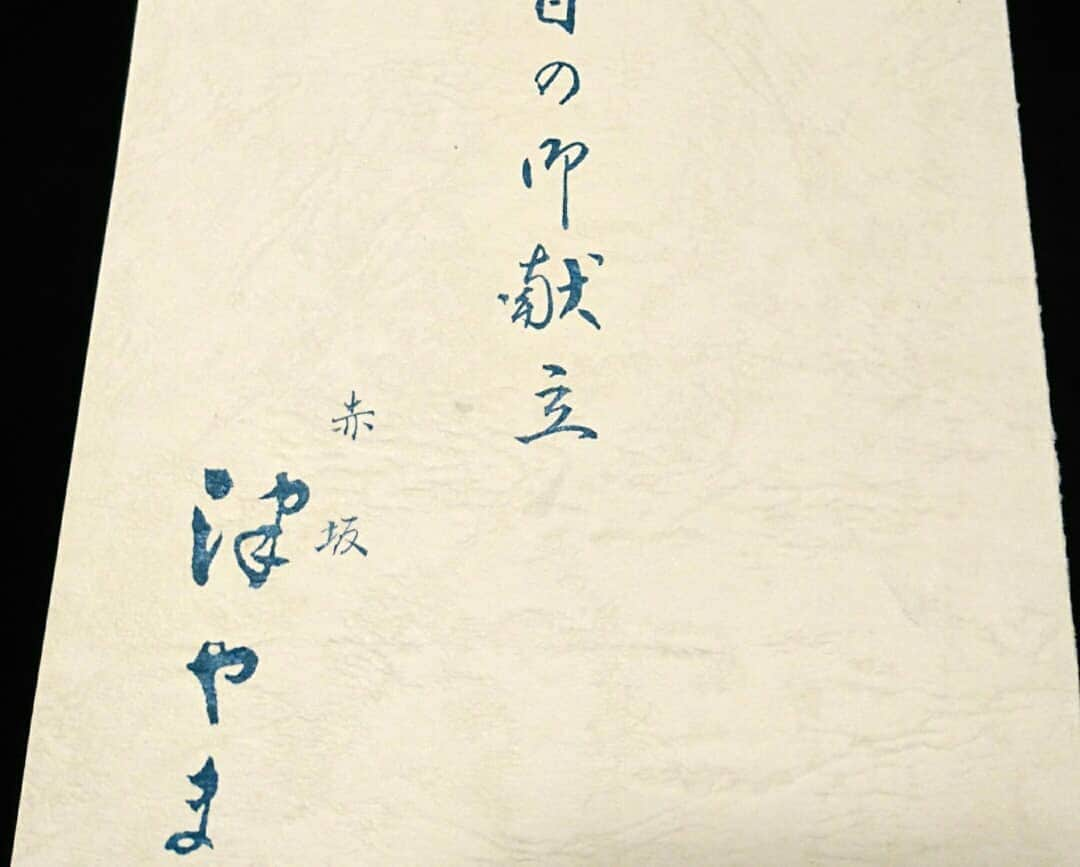 日の御献立
赤坂
津やま